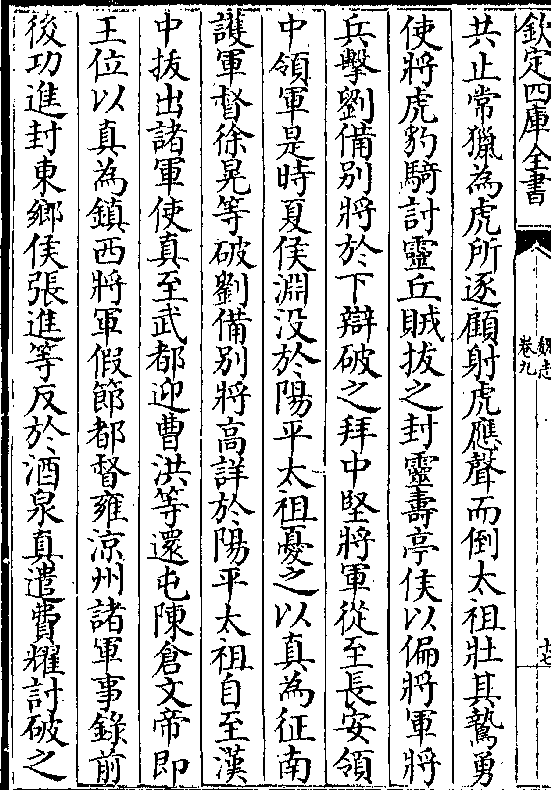 欽定四庫全書
魏志
卷九
十七
共止常獵為虎所逐顧射虎應聲而倒太祖壯其鷙勇
使將虎豹騎討靈丘賊拔之封靈壽亭侯以偏將軍將
兵擊劉備別將於下辯破之拜中堅將軍從至長安領
中領軍是時夏侯淵没於陽平太祖憂之以真為征南
護軍督徐晃等破劉備別將高詳於陽平太祖自至漢
中拔出諸軍使真至武都迎曹洪等還屯陳倉文帝即
王位以真為鎮西將軍假節都督雍涼州諸軍事錄前
後功進封東鄉侯張進等反於酒泉真遣費耀討破之